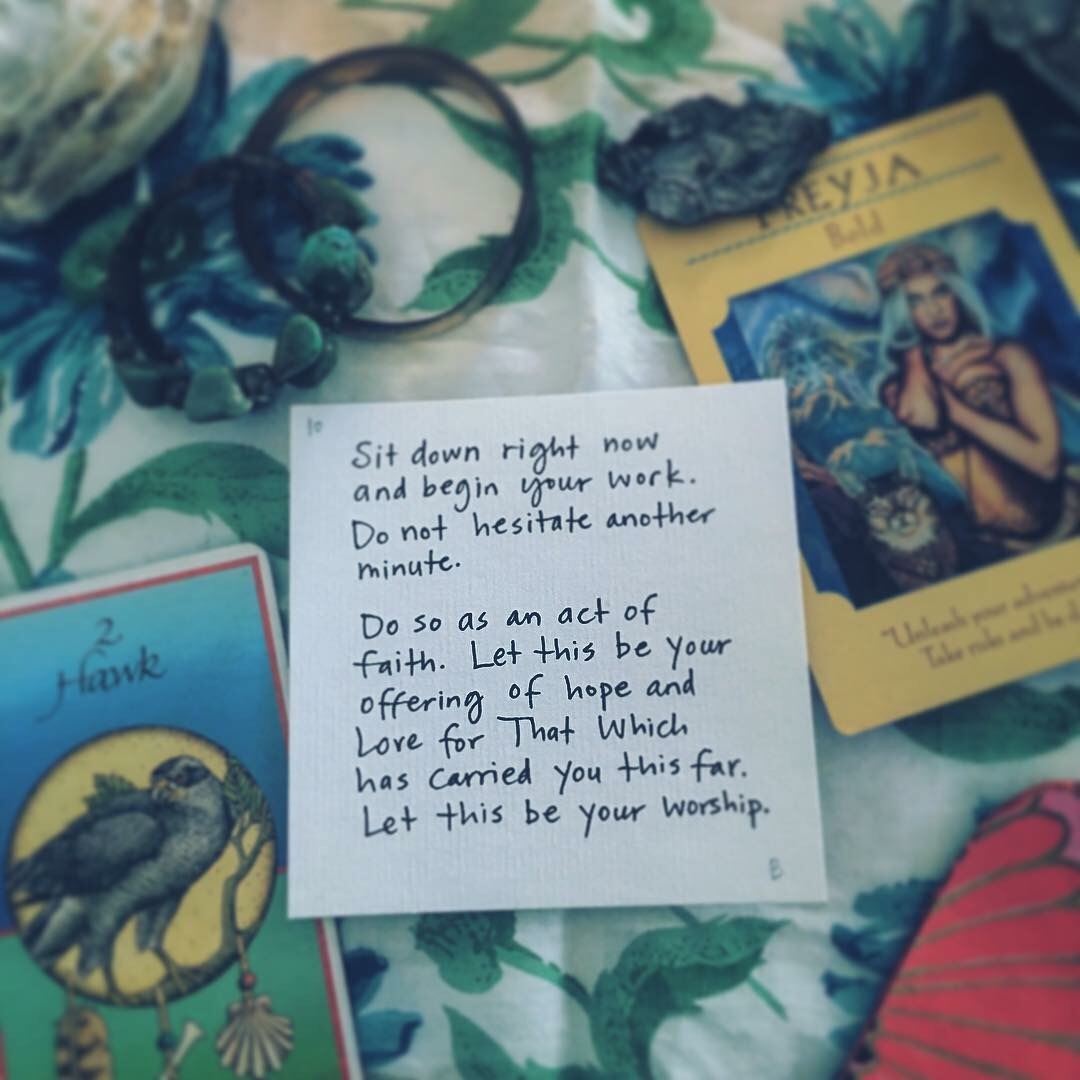 FREYJA
Bold
10
Sit down right now
and begin your work.
Do not hesitate another
minute.
Do so as an act of
faith. Let this be your
offering of hope and
Love for That Which
has carried you this far.
Let this be your worship.
B
2
Hawk
"Unleash your
Take risks and be